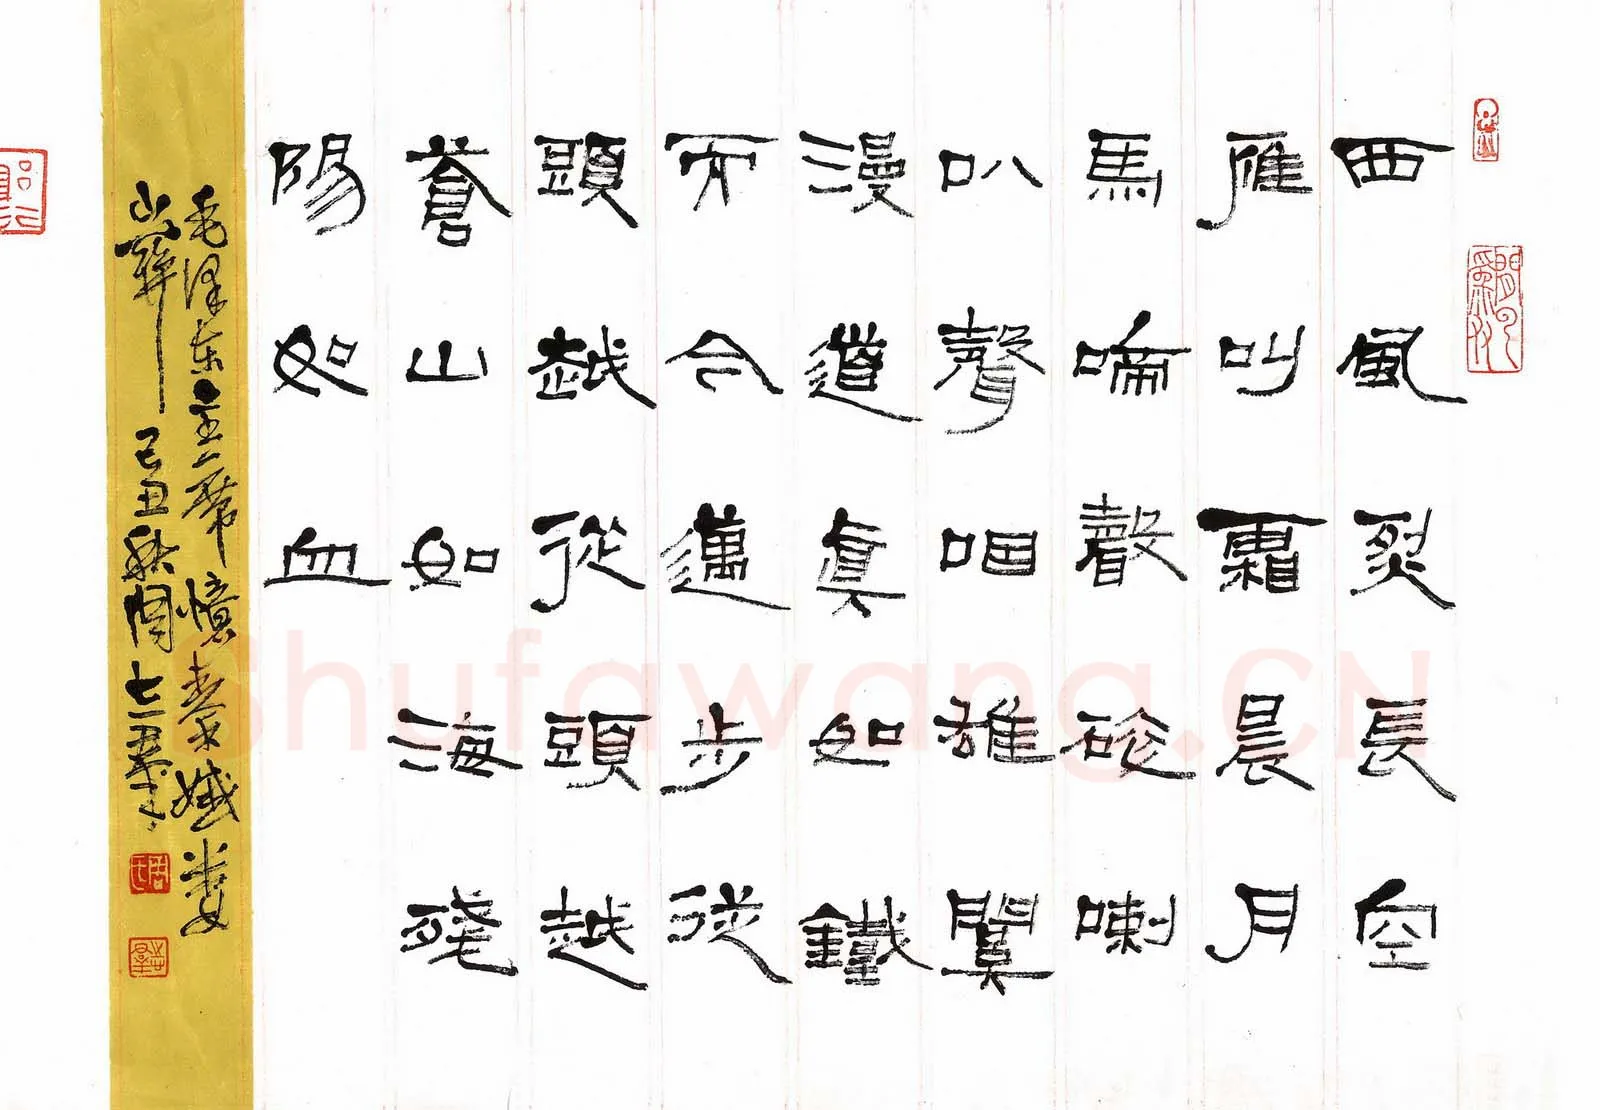 西風烈長空
雁叫霜晨月
馬啼聲碎喇
叭聲咽雄關
漫道真如鐵
而今邁步從
頭越從頭越
蒼山如海殘
陽如血
毛泽东主席憶秦娥婁
山關 己丑秋周
Shufawang.CN